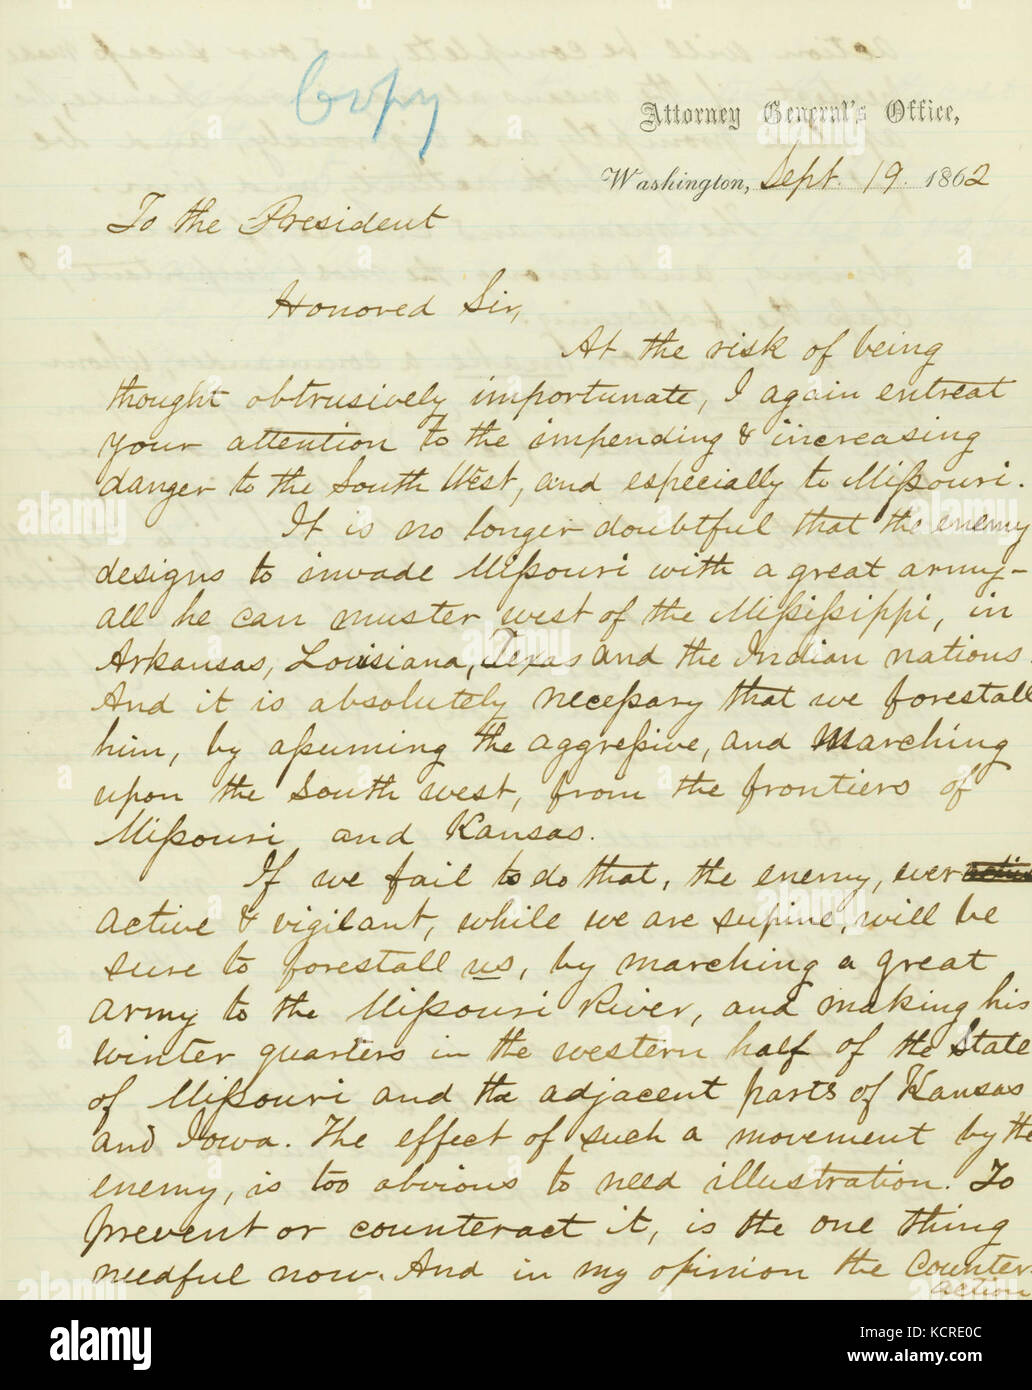 Copy
Attorney General's Office,
Washington, Sept. 19. 1862
To the President
Honored Sir,
At the risk of being
thought obtrusively importunate, I again entreat
your attention to the impending & increasing
danger to the South West, and especially to Missouri.
It is no longer doubtful that the enemy
designs to invade Missouri with a great army-
all he can muster west of the Mississippi, in
Arkansas, Louisiana, Texas and the Indian nations.
And it is absolutely necessary that we forestall
him, by assuming the aggressive, and marching
upon the South west, from the frontiers of
Missouri and Kansas.
If we fail to do that, the enemy, ever
active & vigilant, while we are supine, will be
sure to forestall us, by marching a great
army to the Missouri River, and making his
winter quarters in the western half of the State
of Missouri and the adjacent parts of Kansas
and Iowa. The effect of such a movement by the
enemy, is too obvious to need illustration. To
prevent or counteract it, is the one thing
needful now. And in my opinion the counter-
action
alamy
Image ID: KCRE0C
www.alamy.com